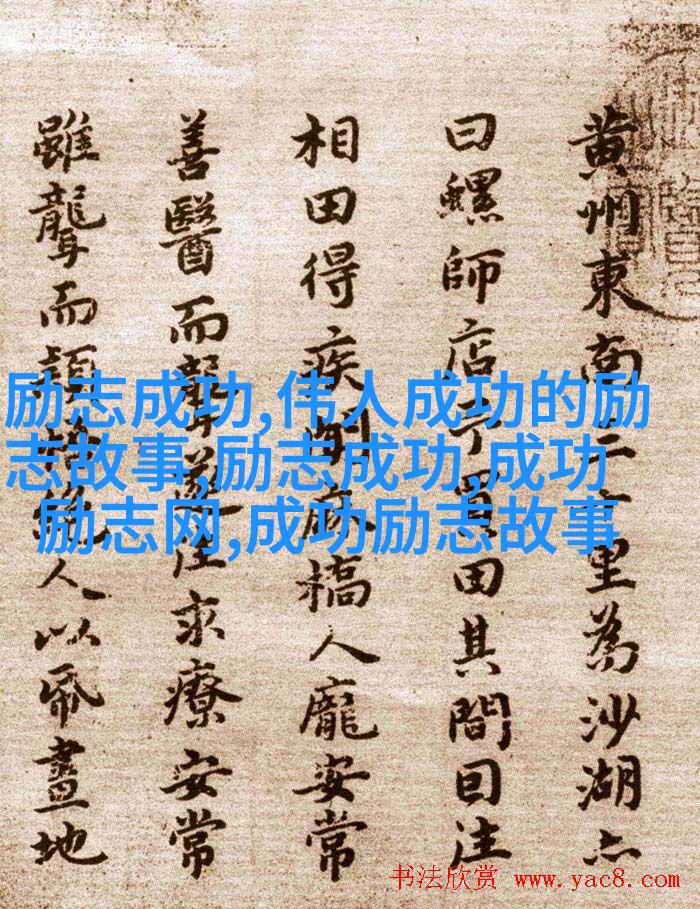 黄州東南三十里為沙湖亦
曰螺師店予買田其間因往
相田得疾聞麻橋人龐安常
善醫而聾遂往求療安常
雖聾而穎悟絶人以帋畫地
励志成功,伟人成功的励
志故事,励志成功,成功
励志网,成功励志故事
书法欣赏 www.yac8.com